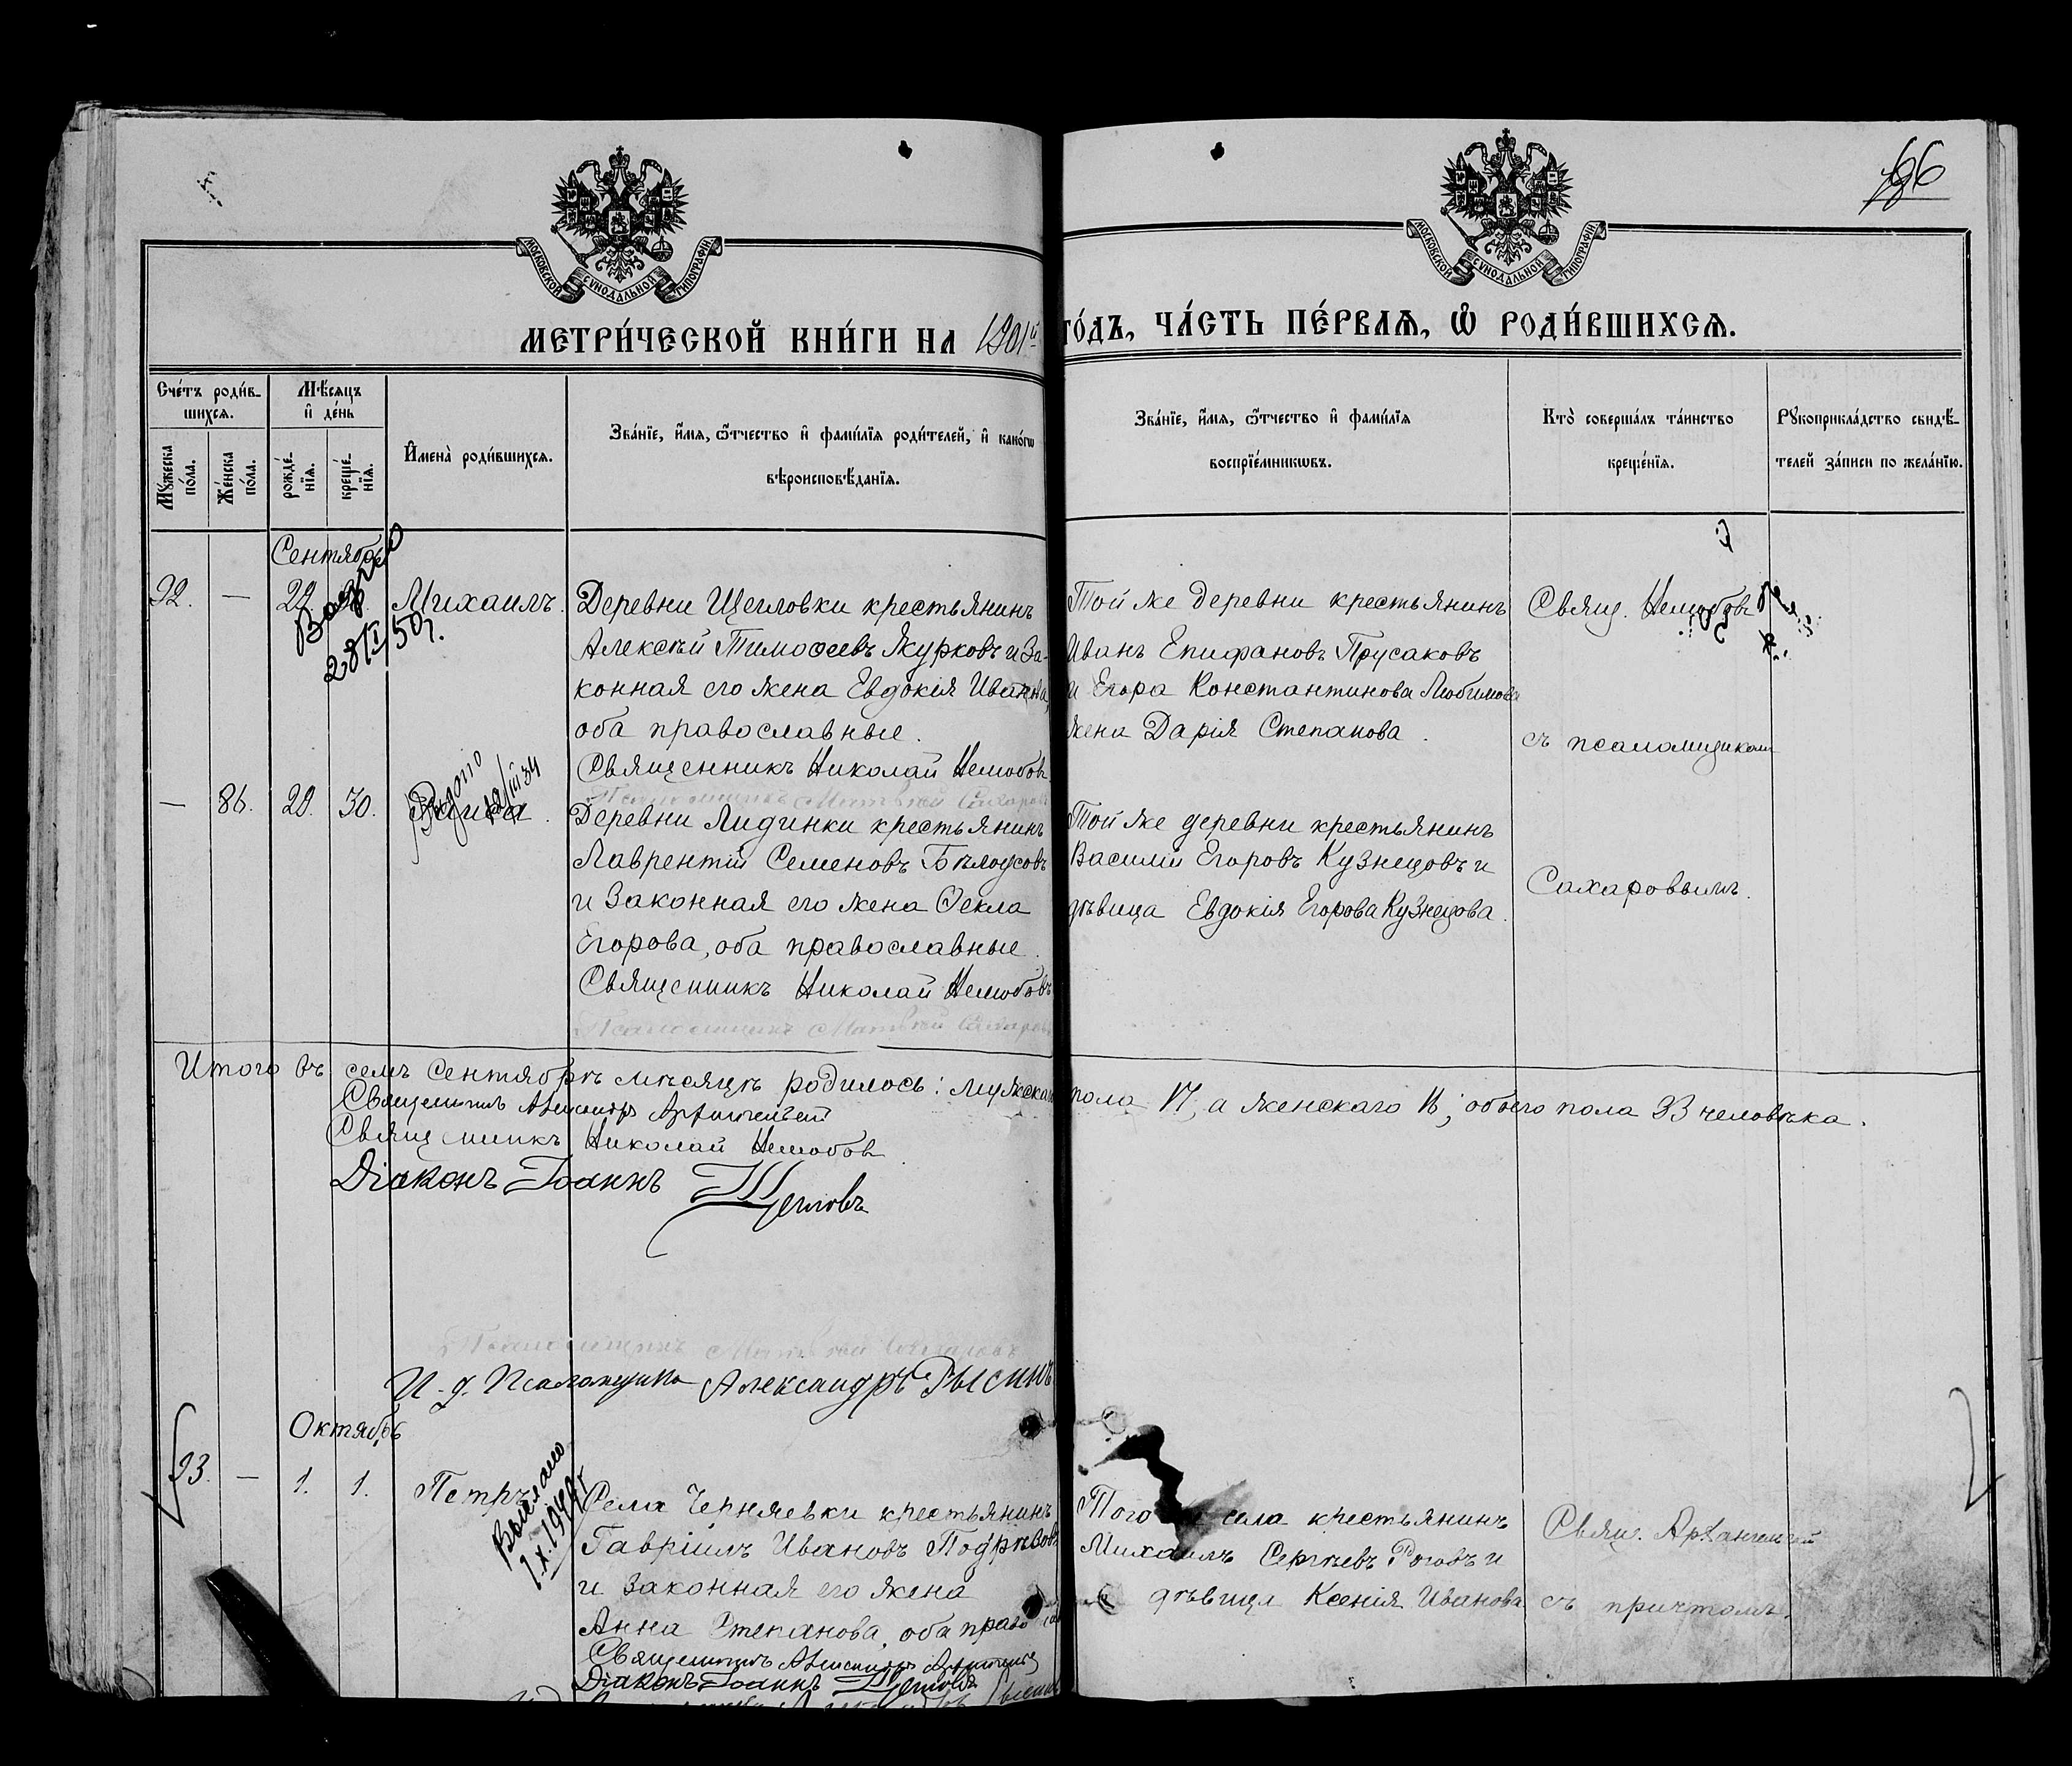 66
МОСКОВСКОЙ СУНОДАЛЬНОЙ ТИПОГРАФІИ
МОСКОВСКОЙ СУНОДАЛЬНОЙ ТИПОГРАФІИ
МЕТРИ́ЧЕСКОЙ КНИ́ГИ НА 1901й ГО́ДЪ, ЧА́СТЬ ПЕ́РВАѦ, Ѽ РОДИ́ВШИХСѦ.
Сче́тъ роди́в-
шихсѧ.
Мꙋ́жеска по́ла.
Же́нска по́ла.
Мѣ́сѧцъ
и҆ де́нь
рожде́-
нїѧ.
креще́-
нїѧ.
И҆мена̀ роди́вшихсѧ.
Зва́нїе, и҆́мѧ, ѻ҆́тчество и҆ фами́лїѧ роди́телей, и҆ како́гѡ
вѣроисповѣ́данїѧ.
Зва́нїе, и҆́мѧ, ѻ҆́тчество и҆ фами́лїѧ
воспрїе́мникѡвъ.
Кто̀ соверша́лъ та́инство
креще́нїѧ.
Рꙋкоприкла́дство свидѣ́-
телей за́писи по жела́нїю.
Сентябрь
92. — 29. Михаилъ.
28/I 50г.
Деревни Щегловки крестьянинъ
Алексѣй Тимоѳеевъ Журковъ и за-
конная его жена Евдокія Иванова,
оба православные.
Священникъ Николай Нелюбовъ
Псаломщикъ Матвѣй Сахаровъ
Той же деревни крестьянинъ
Иванъ Епифановъ Прусаковъ
и Егора Константинова Любимова
жена Дарія Степанова.
Свящ. Нелюбовъ
съ псаломщикомъ
Сахаровымъ.
— 86. 29. 30. Раиса.
Выдано
12/III 34
Деревни Лидинки крестьянинъ
Лаврентій Семеновъ Бѣлоусовъ
и законная его жена Ѳекла
Егорова, оба православные.
Священникъ Николай Нелюбовъ
Псаломщикъ Матвѣй Сахаровъ
Той же деревни крестьянинъ
Василій Егоровъ Кузнецовъ и
дѣвица Евдокія Егорова Кузнецова.
Итого въ семъ Сентябрѣ мѣсяцѣ родилось: мужскаго пола 17, а женскаго 16; обоего пола 33 человѣка.
Священникъ Александръ Архангельскій
Священникъ Николай Нелюбовъ
Діаконъ Іоаннъ Щегловъ
Псаломщикъ Матвѣй Сахаровъ
И. д. Псаломщика Александръ Рысинъ
Октябрь
93. — 1. 1. Петръ
Выдано
1.X.1949г
Села Черняевки крестьянинъ
Гавріилъ Ивановъ
и законная его жена
Анна Степанова, оба правосла
Священникъ Александръ Архангельскій
Діаконъ Іоаннъ Щегловъ
Того села крестьянинъ
Михаилъ Сергѣевъ Роговъ и
дѣвица Ксенія Иванова
Свящ. Архангельскій
съ причтомъ.